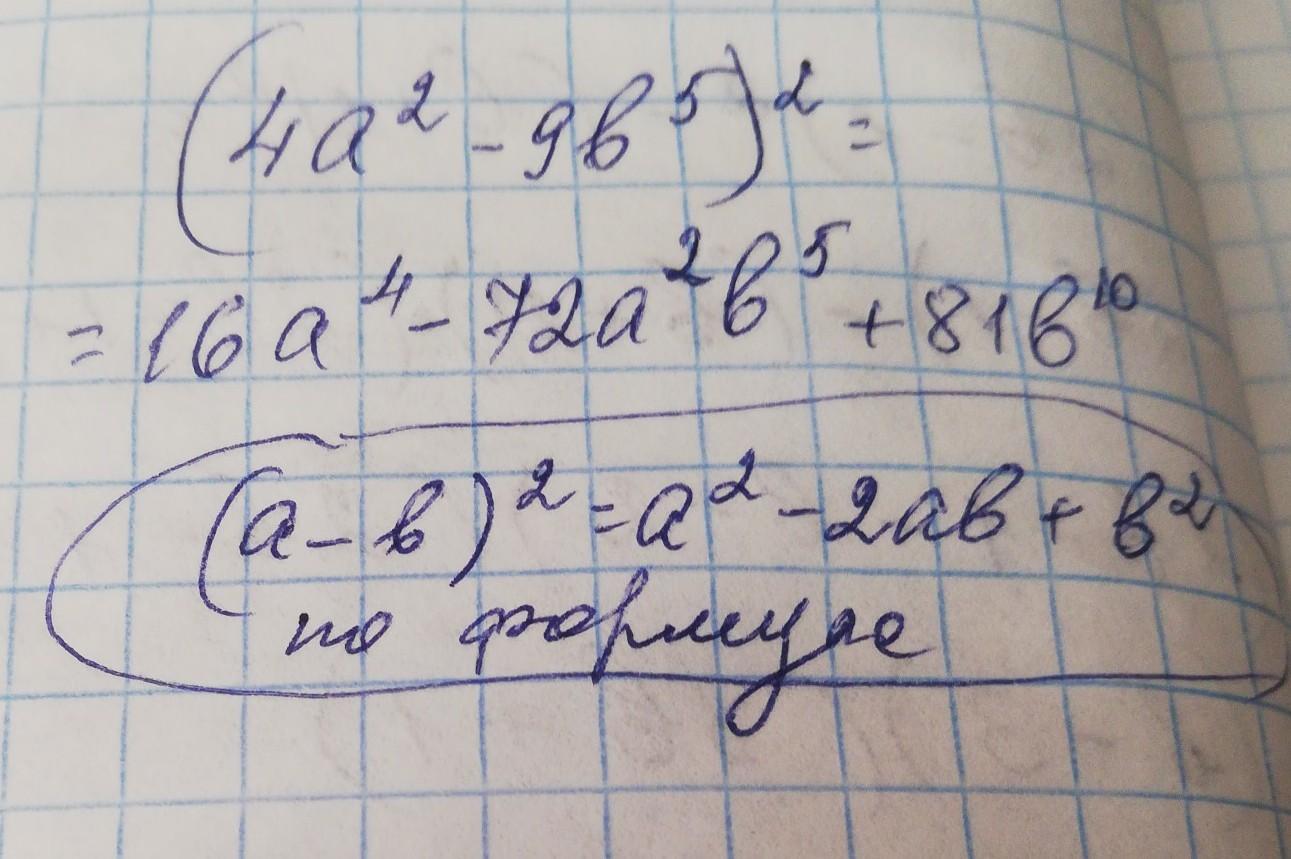 (4a² - 9b⁵)² =
= 16a⁴ - 72a²b⁵ + 81b¹⁰
(a - b)² = a² - 2ab + b²
по формуле